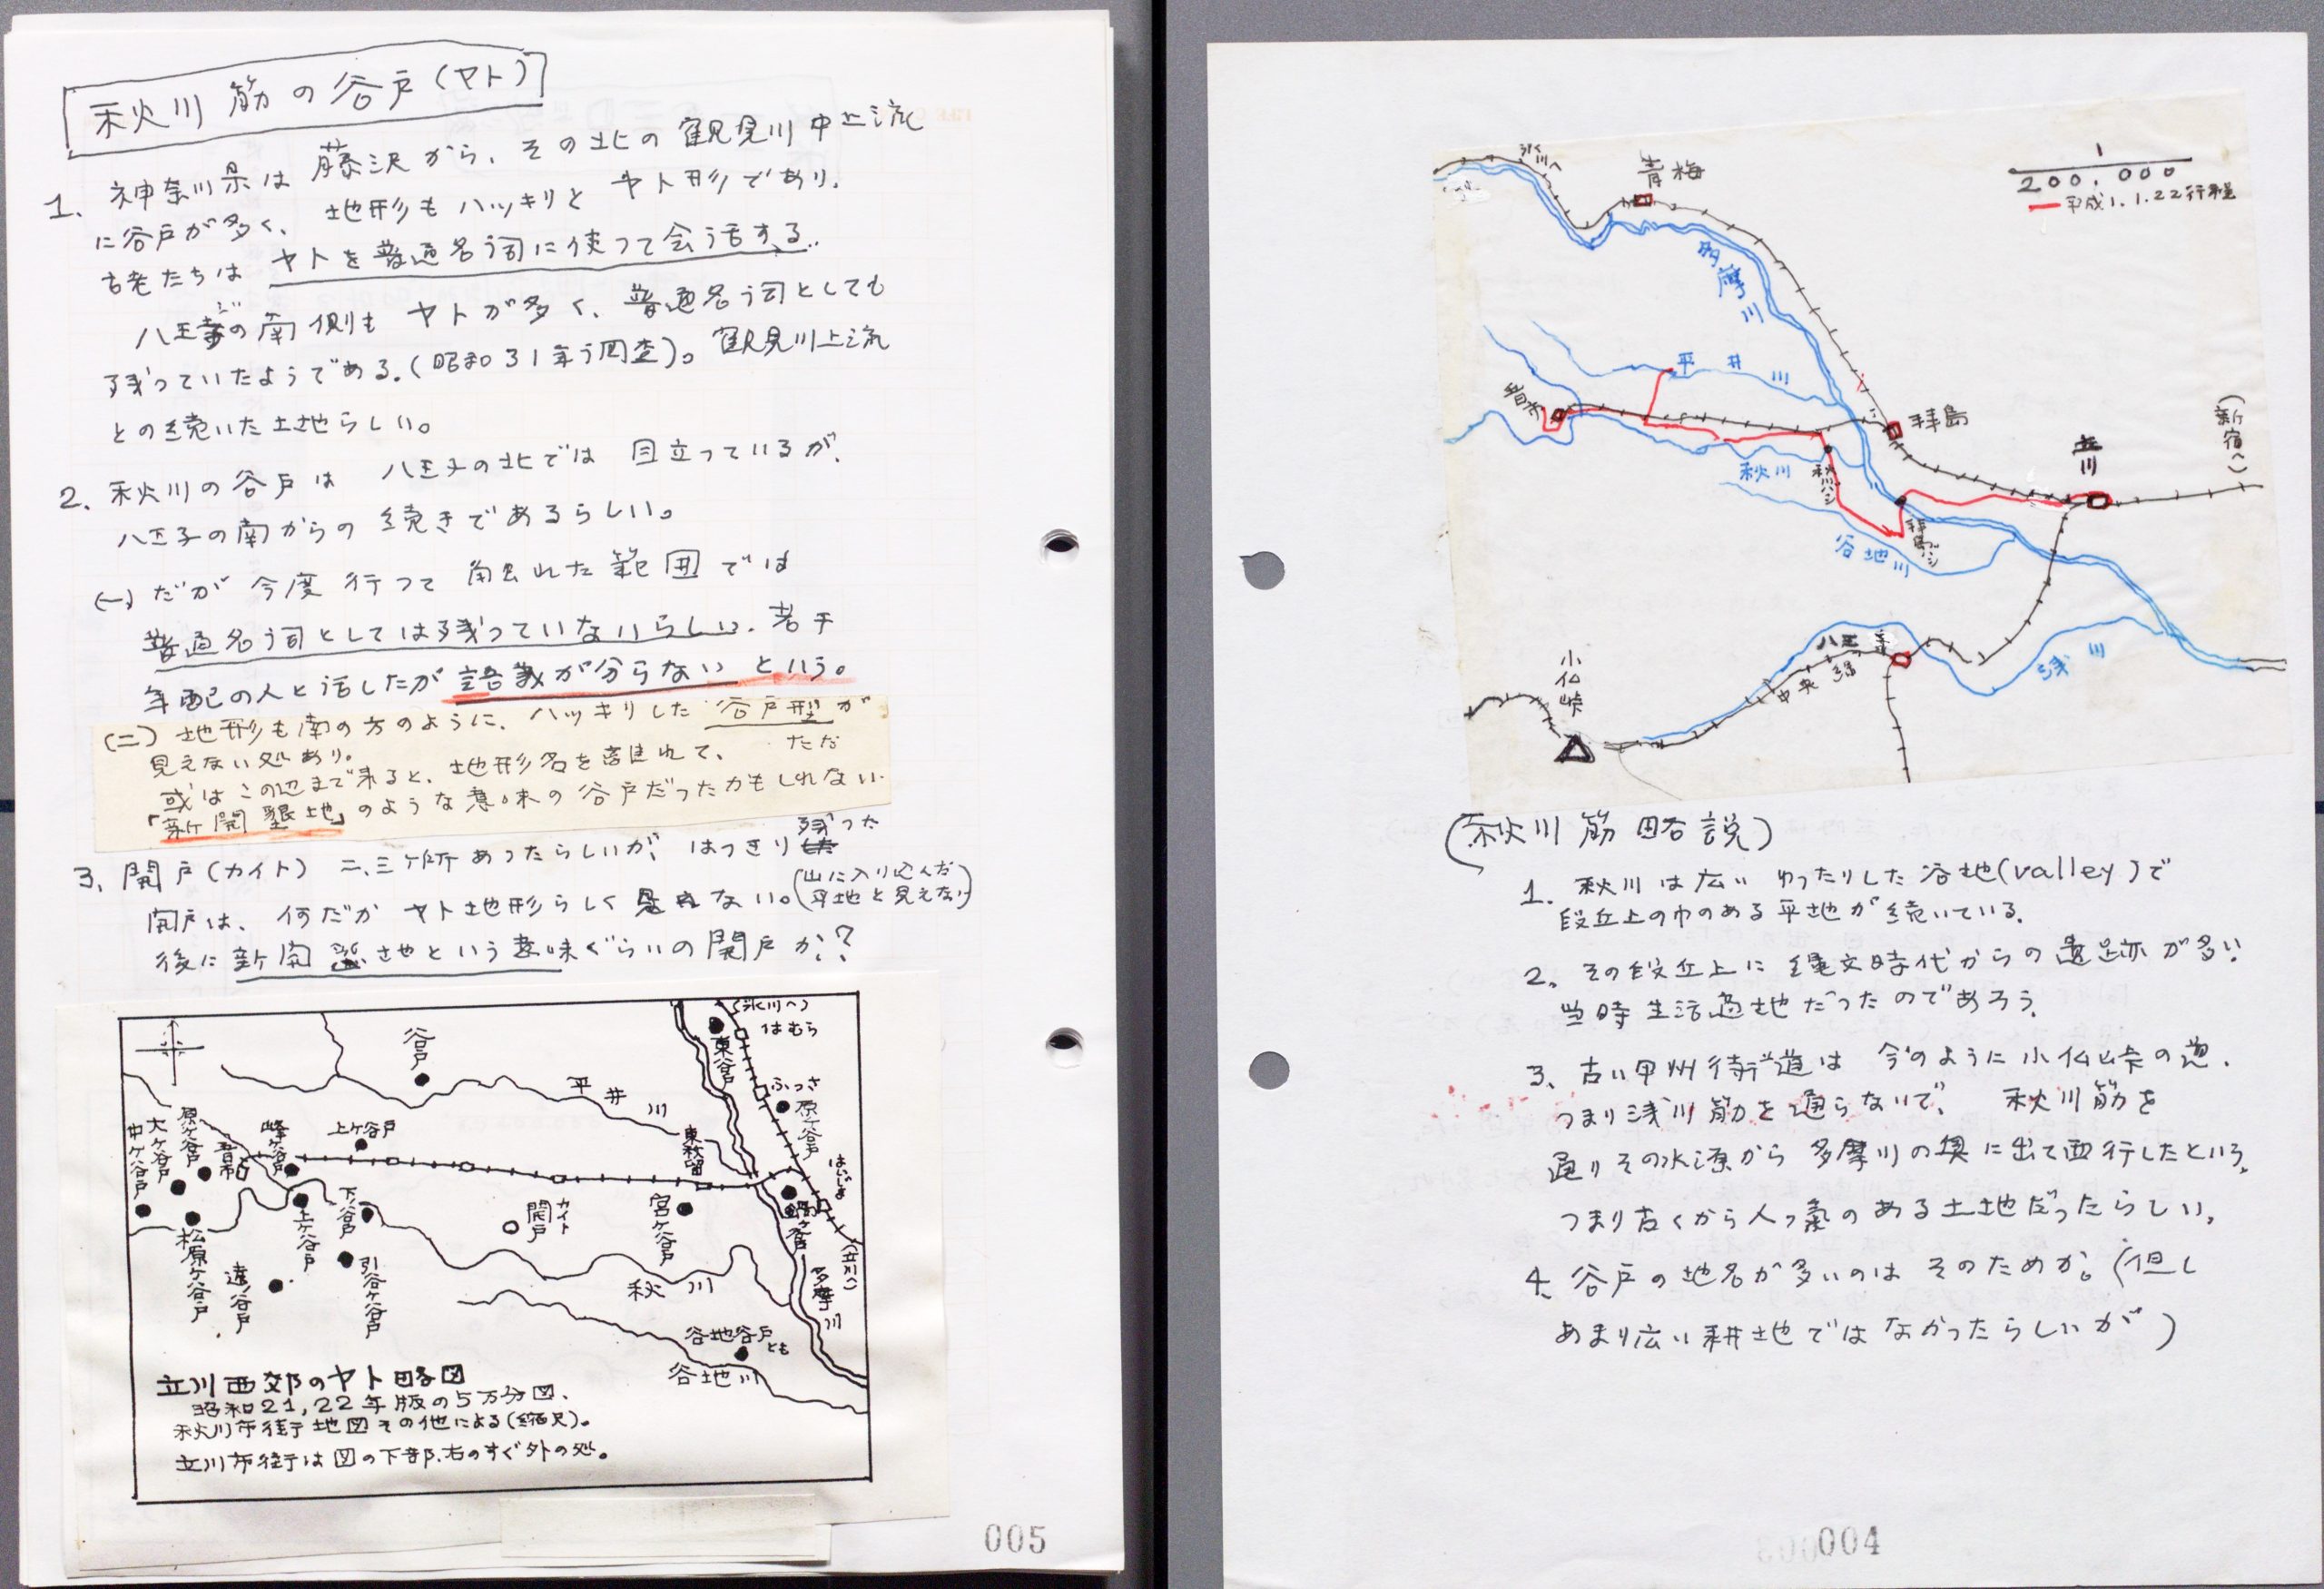 秋川筋の谷戸(ヤト)
1. 神奈川県は 藤沢から、その北の鶴見川中上流
に谷戸が多く、地形もハッキリとヤト形であり、
古老たちは ヤトを普通名詞に使って会話する。
八王子の南側も ヤトが多く、普通名詞としても
残っていたようである。(昭和31年調査)。鶴見川上流
との続いた土地らしい。
2. 秋川の谷戸は 八王子の北では 目立っているが、
八王子の南からの 続きであるらしい。
(一) だが 今度 行って 触れた範囲では
普通名詞としては残っていないらしい。若干
年配の人と話したが 語義が分らない という。
(二) 地形も南の方のように、ハッキリした 谷戸型が
見えない処あり。 ただ
或はこの辺まで来ると、地形名を離れて、
「新開墾地」のような意味の谷戸だったかもしれない。
3. 開戸(カイト) 二、三ケ所あったらしいが、はっきり残った
開戸は、何だか ヤト地形らしく見えない。(山に入り込んだ
平地と見えない)
後に新開墾地という意味ぐらいの開戸か?
(氷川へ)
はむら
東谷戸
谷戸
ふっさ
原ヶ谷戸
平井川
東秋留
はいじま
上ケ谷戸
峰ヶ谷戸
原ヶ谷戸
大ヶ谷戸
中ケ谷戸
下ノ谷戸
上ヶ谷戸
開戸
カイト
宮ヶ谷戸
松原ヶ谷戸
引谷ヶ谷戸
(立川へ)
多摩川
秋川
谷地谷戸
とも
谷地川
立川西郊のヤト略図
昭和21,22年版の5万分図、
秋川市街地図その他による(縮尺)。
立川市街は図の下部、右のすぐ外の処。
005
氷川へ
青梅
1
200.000
平成1.1.22行程
多摩川
平井川
拝島
(新宿へ)
立川
秋川
秋川バシ
拝島バシ
谷地川
八王子
浅川
小仏峠
中央線
(秋川筋略説)
1. 秋川は広い ゆったりした谷地(valley)で
段丘上の巾のある平地が続いている。
2. その段丘上に 縄文時代からの遺跡が多い
当時生活適地だったのであろう。
3. 古い甲州街道は 今のように小仏峠の道、
つまり浅川筋を通らないで、秋川筋を
通りその水源から 多摩川の奥に出て西行したという。
つまり古くから人っ気のある土地だったらしい。
4. 谷戸の地名が多いのは そのためか。(但し
あまり広い耕地ではなかったらしいが)
004